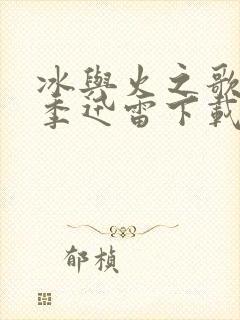 冰與火之歌
季迅雷下載
郁楨